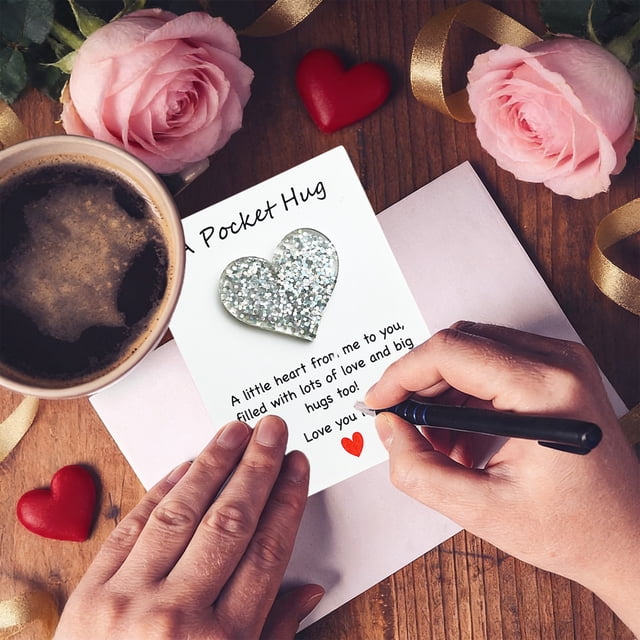 A Pocket Hug
A little heart from me to you,
filled with lots of love and big
hugs too!
Love you